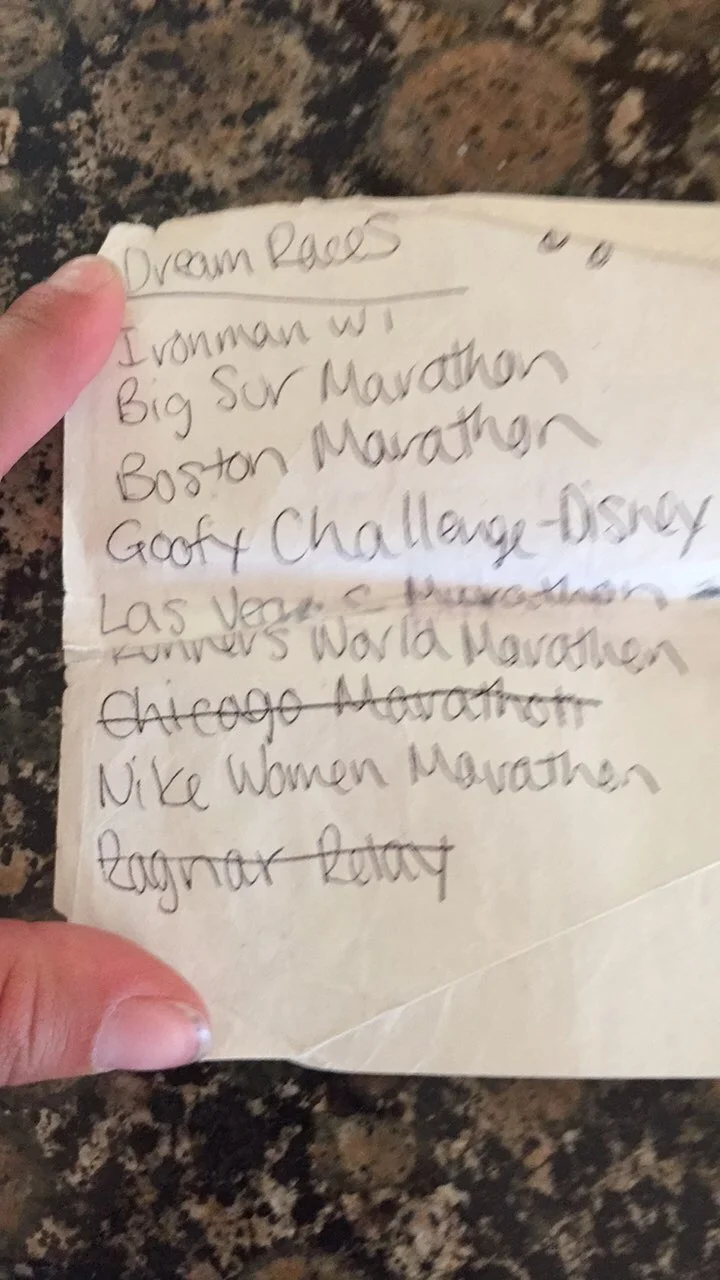 Dream Races
Ironman WI
Big Sur Marathon
Boston Marathon
Goofy Challenge-Disney
Las Vegas Marathon
Runners World Marathon
Chicago Marathon
Nike Women Marathon
Ragnar Relay